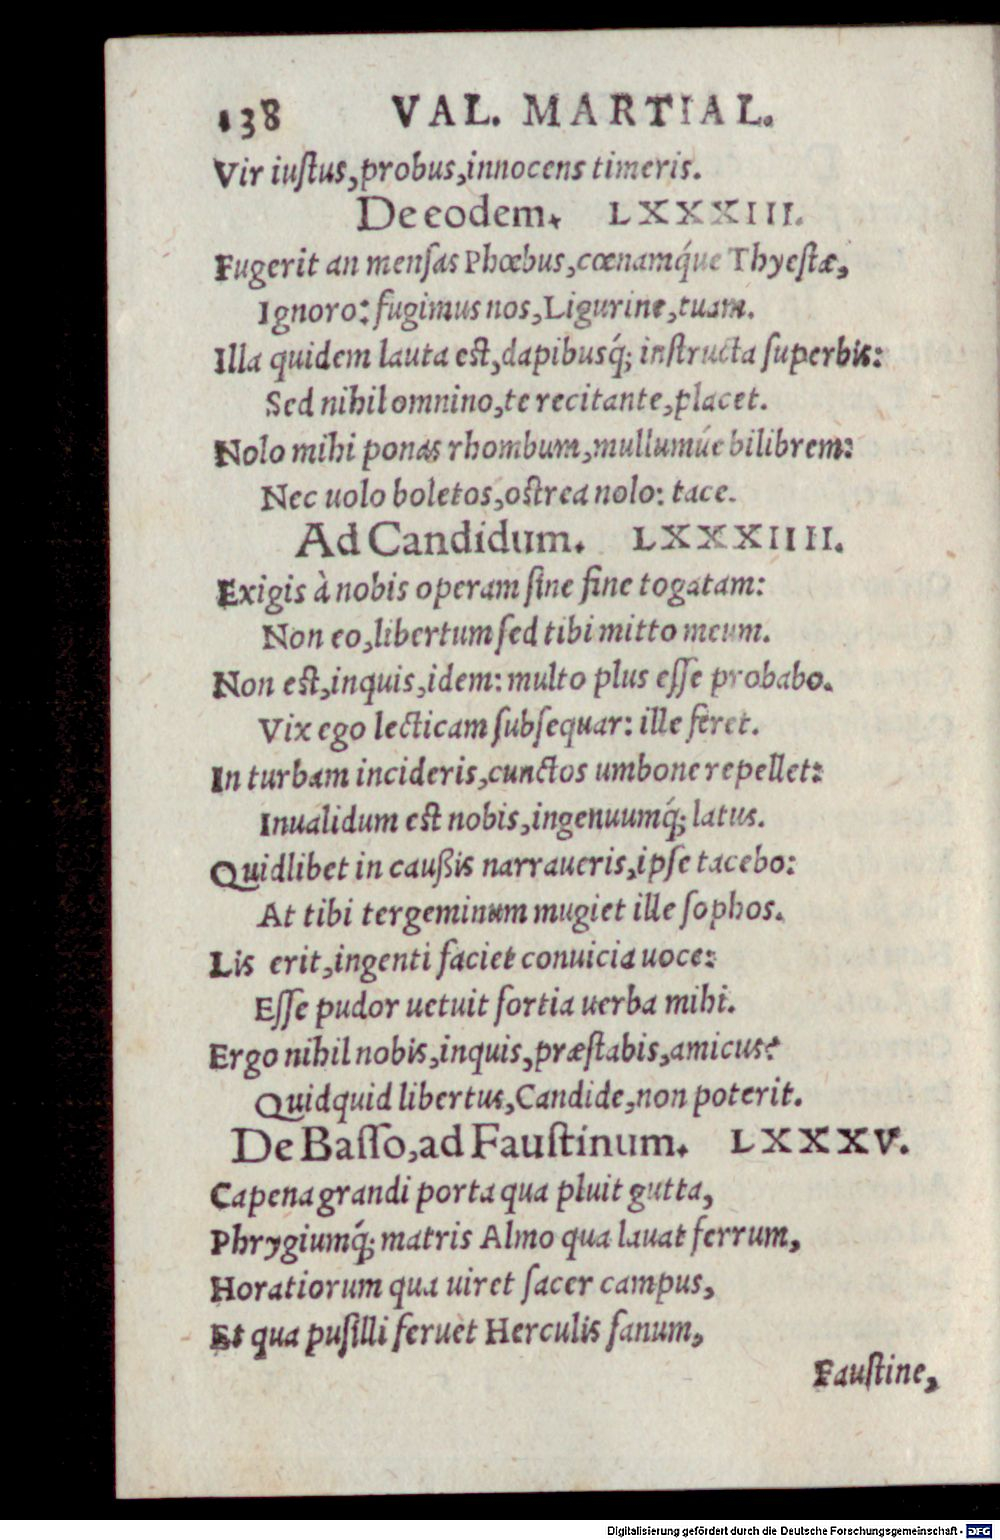 138 VAL. MARTIAL.
Vir iuſtus, probus, innocens timeris.
De eodem. LXXXIII.
Fugerit an menſas Phœbus, cœnamq́ue Thyeſtæ,
Ignoro: fugimus nos, Ligurine, tuam.
Illa quidem lauta eſt, dapibusq́; inſtructa ſuperbis:
Sed nihil omnino, te recitante, placet.
Nolo mihi ponas rhombum, mullumúe bilibrem:
Nec uolo boletos, oſtrea nolo: tace.
Ad Candidum. LXXXIIII.
Exigis à nobis operam ſine fine togatam:
Non eo, libertum ſed tibi mitto meum.
Non eſt, inquis, idem: multo plus eſſe probabo.
Vix ego lecticam ſubſequar: ille feret.
In turbam incideris, cunctos umbone repellet:
Inualidum eſt nobis, ingenuumq́; latus.
Quidlibet in caußis narraueris, ipſe tacebo:
At tibi tergeminum mugiet ille ſophos.
Lis erit, ingenti faciet conuicia uoce:
Eſſe pudor uetuit fortia uerba mihi.
Ergo nihil nobis, inquis, præſtabis, amicus?
Quidquid libertus, Candide, non poterit.
De Baſſo, ad Fauſtinum. LXXXV.
Capena grandi porta qua pluit gutta,
Phrygiumq́; matris Almo qua lauat ferrum,
Horatiorum qua uiret ſacer campus,
Et qua puſilli feruet Herculis fanum,
Fauſtine,
Digitalisierung gefördert durch die Deutsche Forschungsgemeinschaft - DFG